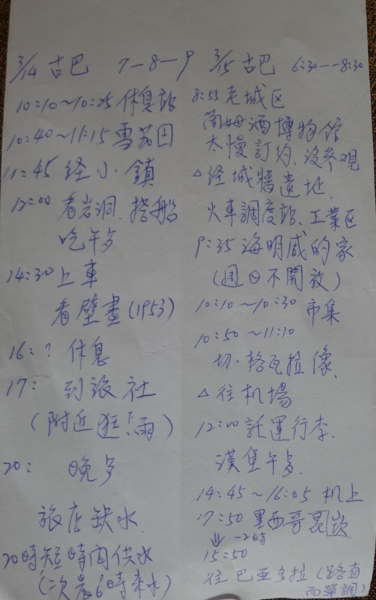 3/14 古巴 7-8-9
10:10~10:25 休息站
10:40~11:15 雪茄田
11:45 经小鎮
12:00 看岩洞.搭船
吃午歺
14:30 上車
看壁畫(1953)
16:? 休息
17: 到旅社
(附近逛"雨)
20: 晚歺
旅店缺水
20時短時間供水
(次晨6時來水)
3/15 古巴 6:30--8:30
8:55 老城区
蘭姆酒博物館
太慢訂約.没參观
△经城牆遺地.
火車調度站.工業区
9:35 海明威的家
(週日不開放)
10:10~10:30 市集
10:50~11:10
切.格瓦拉像.
△往机場
12:00 託運行李.
漢堡午歺.
14:45~16:05 机上
17:50 墨西哥
-2時
15:50
往巴亞